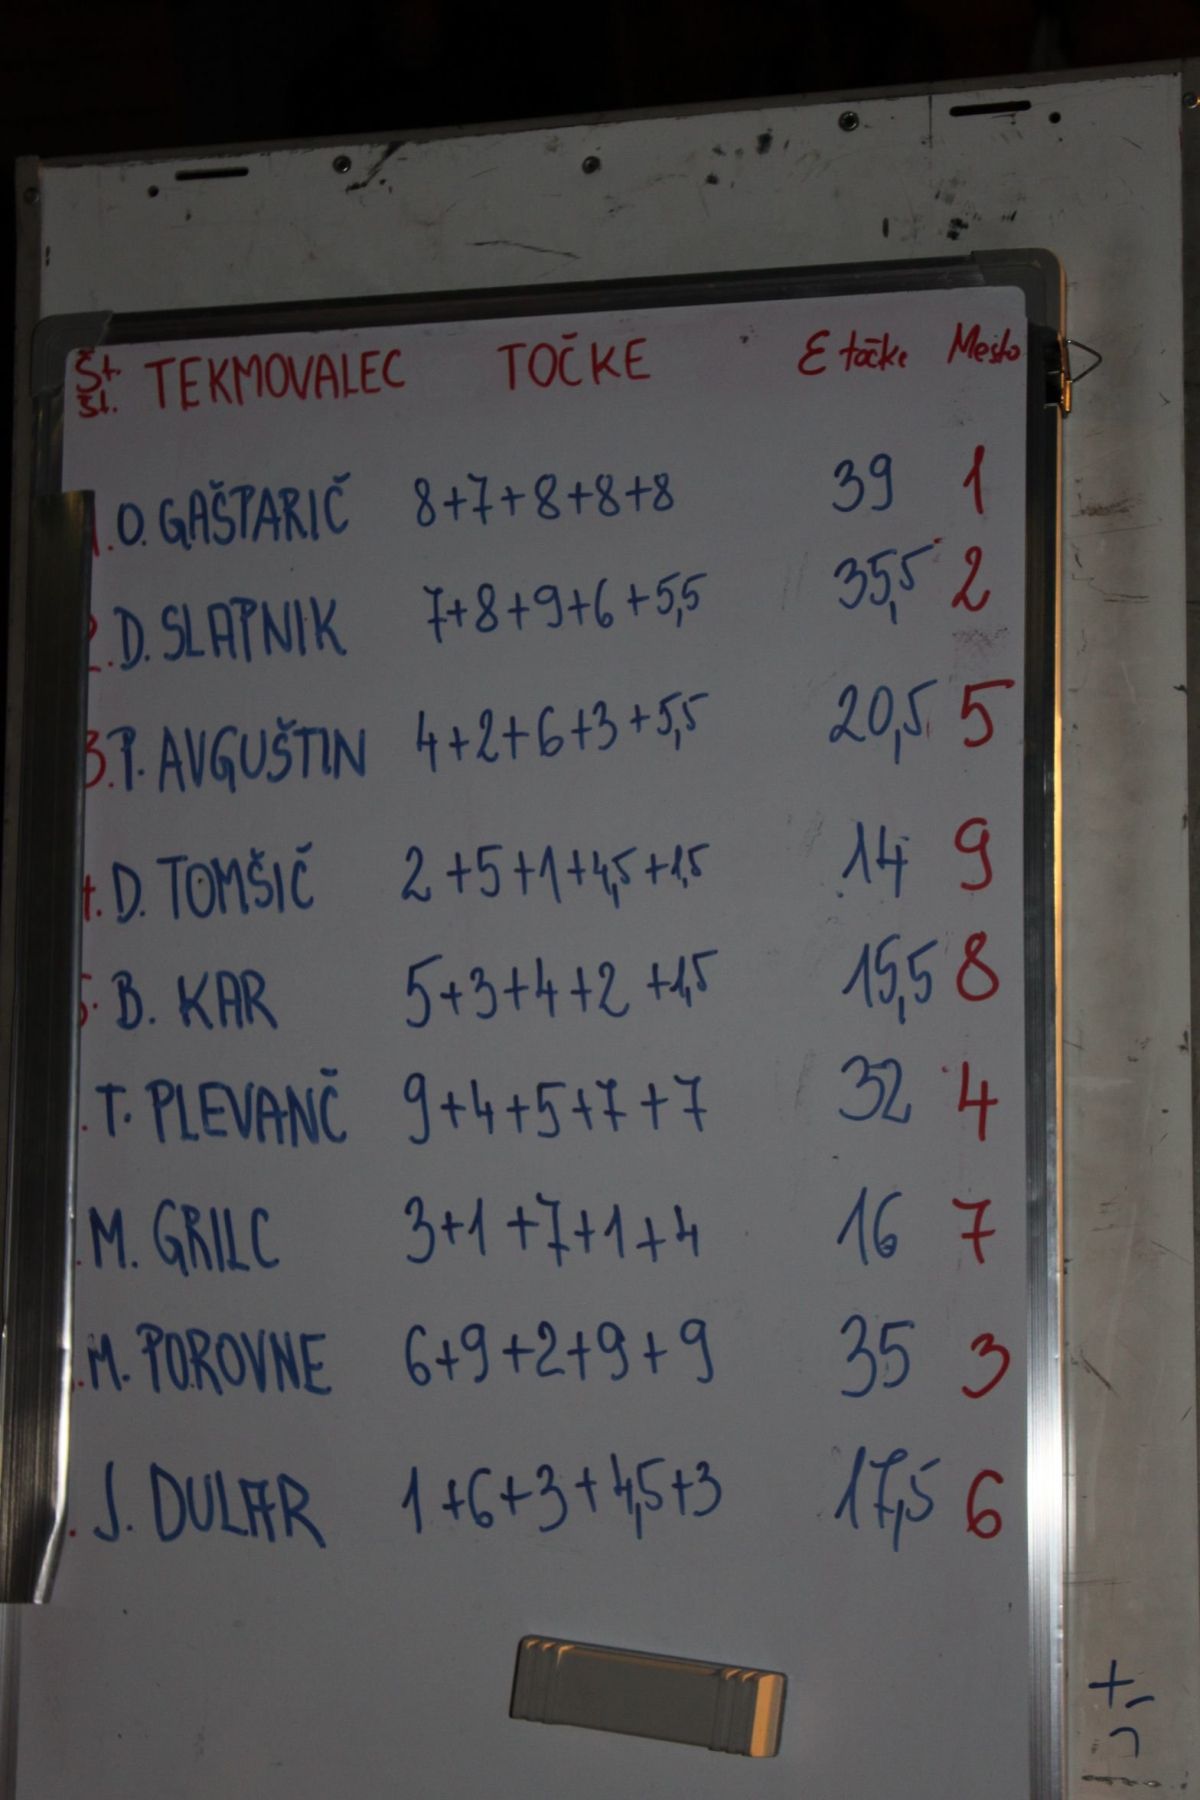 Št. TEKMOVALEC TOČKE Σ točke Mesto
Št.
1. O. GAŠPARIČ 8+7+8+8+8 39 1
2. D. SLAPNIK 7+8+9+6+5,5 35,5 2
3. P. AVGUŠTIN 4+2+6+3+5,5 20,5 5
4. D. TOMŠIČ 2+5+1+4,5+1,5 14 9
5. B. KAR 5+3+4+2+1,5 15,5 8
. T. PLEVANČ 9+4+5+7+7 32 4
. M. GRILC 3+1+7+1+4 16 7
. M. POROVNE 6+9+2+9+9 35 3
. J. DULAR 1+6+3+4,5+3 17,5 6